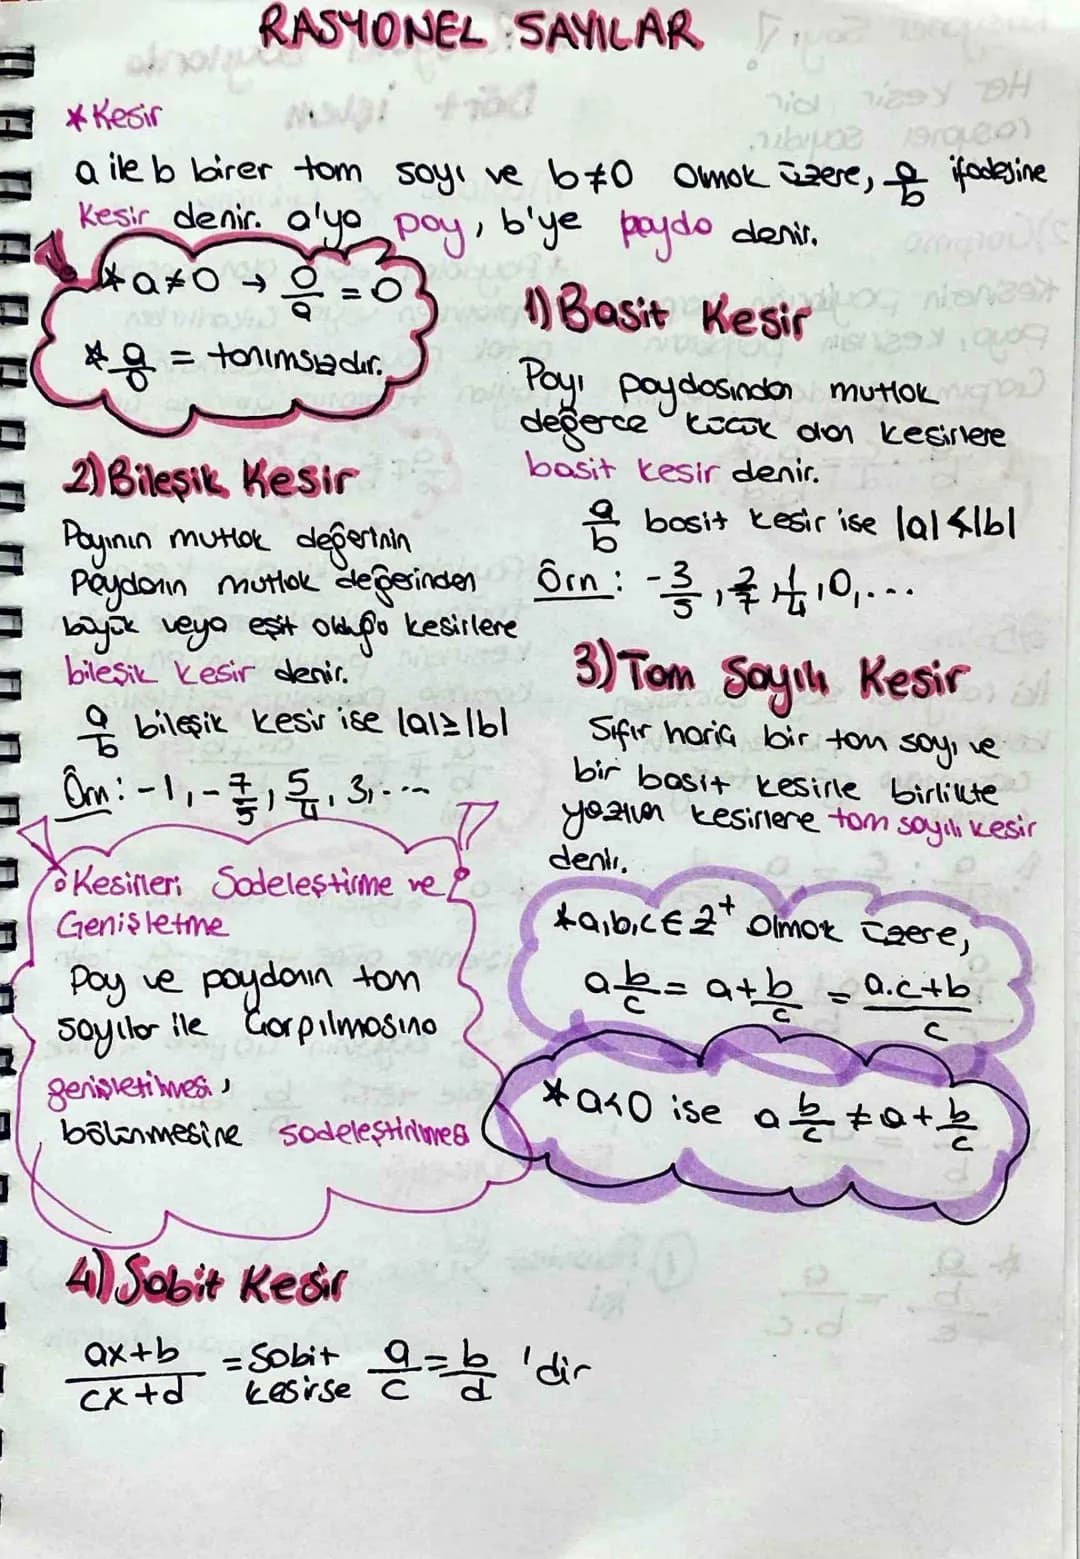 RASYONEL SAYILAR
* Kesir
a ile b birer tam sayı ve b≠0 olmak üzere, a/b ifadesine
kesir denir. a'ya pay, b'ye payda denir.
* a≠0 → 0/a = 0
* a/0 = tanımsızdır.
1) Basit Kesir
Payı paydasından mutlak
değerce küçük olan kesirlere
basit kesir denir.
a/b basit kesir ise |a|<|b|
Örn: -3/5, 2/7, 1/4, 0, ...
2) Bileşik Kesir
Payının mutlak değerinin
Paydanın mutlak değerinden
büyük veya eşit olduğu kesirlere
bileşik kesir denir.
a/b bileşik kesir ise |a|≥|b|
Örn: -1, -7/5, 5/4, 3, ...
3) Tam Sayılı Kesir
Sıfır hariç bir tam sayı ve
bir basit kesirle birlikte
yazılan kesirlere tam sayılı kesir
denir.
* a,b,c ∈ Z⁺ olmak üzere,
a b/c = a + b/c = a.c+b/c
* a<0 ise a b/c ≠ a + b/c
• Kesirleri Sadeleştirme ve
Genişletme
Pay ve paydanın tam
sayılar ile çarpılmasına
genişletilmesi,
bölünmesine sadeleştirilmesi
4) Sabit Kesir
ax+b/cx+d = Sabit kesirse a/c = b/d 'dir